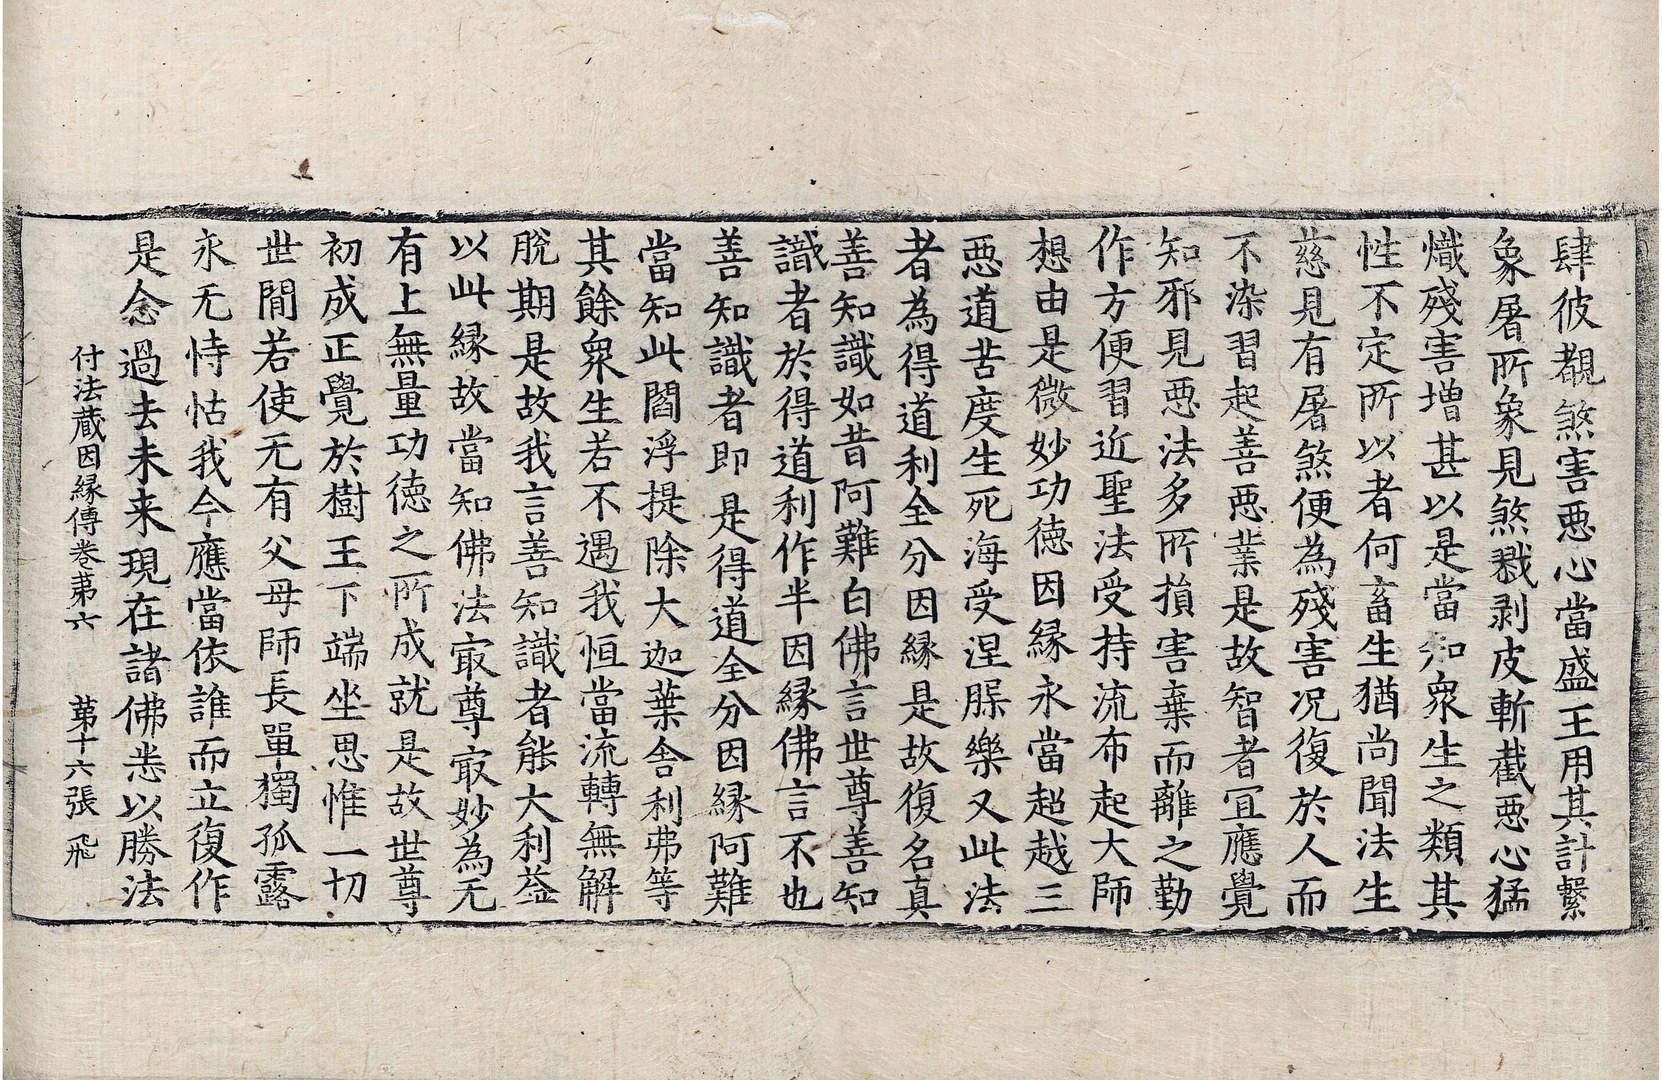 肆彼覩煞害惡心當盛王用其計繫
象屠所象見煞戮剥皮斬截惡心猛
熾殘害增甚以是當知衆生之類其
性不定所以者何畜生猶尚聞法生
慈見有屠煞便為殘害况復於人而
不染習起善惡業是故智者冝應覺
知邪見惡法多所損害棄而離之勤
作方便習近聖法受持流布起大師
想由是微妙功德因縁永當超越三
惡道苦度生死海受涅槃樂又此法
者為得道利全分因縁是故復名真
善知識如昔阿難白佛言世尊善知
識者於得道利作半因縁佛言不也
善知識者即是得道全分因縁阿難
當知此閻浮提除大迦葉舍利弗等
其餘衆生若不遇我恒當流轉無解
脫期是故我言善知識者能大利益
以此縁故當知佛法㝡尊㝡妙為无
有上無量功德之所成就是故世尊
初成正覺於樹王下端坐思惟一切
世閒若使无有父母師長單獨孤露
永无恃怙我今應當依誰而立復作
是念過去未来現在諸佛悉以勝法
付法蔵因縁傳卷苐六　苐十六張　飛